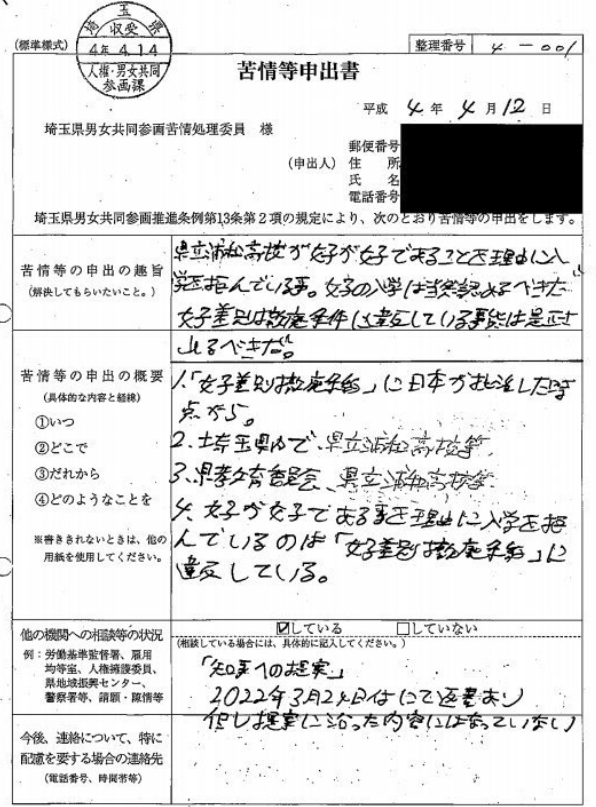 埼玉県
収受
4年 4.14
人権・男女共同
参画課
(標準様式)
整理番号 4-001
苦情等申出書
平成 4年 4月12日
埼玉県男女共同参画苦情処理委員 様
郵便番号
(申出人) 住 所
氏 名
電話番号
埼玉県男女共同参画推進条例第13条第2項の規定により、次のとおり苦情等の申出をします。
苦情等の申出の趣旨
(解決してもらいたいこと。)
県立浦和高校が女子が女子であることを理由に入
学を拒んでいる事。女子の入学は当然認めるべきだ
女子差別撤廃条件に違反している事態は是正さ
れるべきだ。
苦情等の申出の概要
(具体的な内容と経緯)
①いつ
②どこで
③だれから
④どのようなことを
※書ききれないときは、他の
用紙を使用してください。
1.「女子差別撤廃条約」に日本が批准した時
点から。
2.埼玉県内で、県立浦和高校等
3.県教育委員会、県立浦和高校等
4.女子が女子である事を理由に入学を拒
んでいるのは「女子差別撤廃条約」に
違反している。
他の機関への相談等の状況
例:労働基準監督署、雇用
均等室、人権擁護委員、
県地域振興センター、
警察署等、請願・陳情等
☑している □していない
(相談している場合には、具体的に記入してください。)
「知事への提案」
2022年3月24日付にて返書あり
但し提案に沿った内容にはなっていない
今後、連絡について、特に
配慮を要する場合の連絡先
(電話番号、時間帯等)